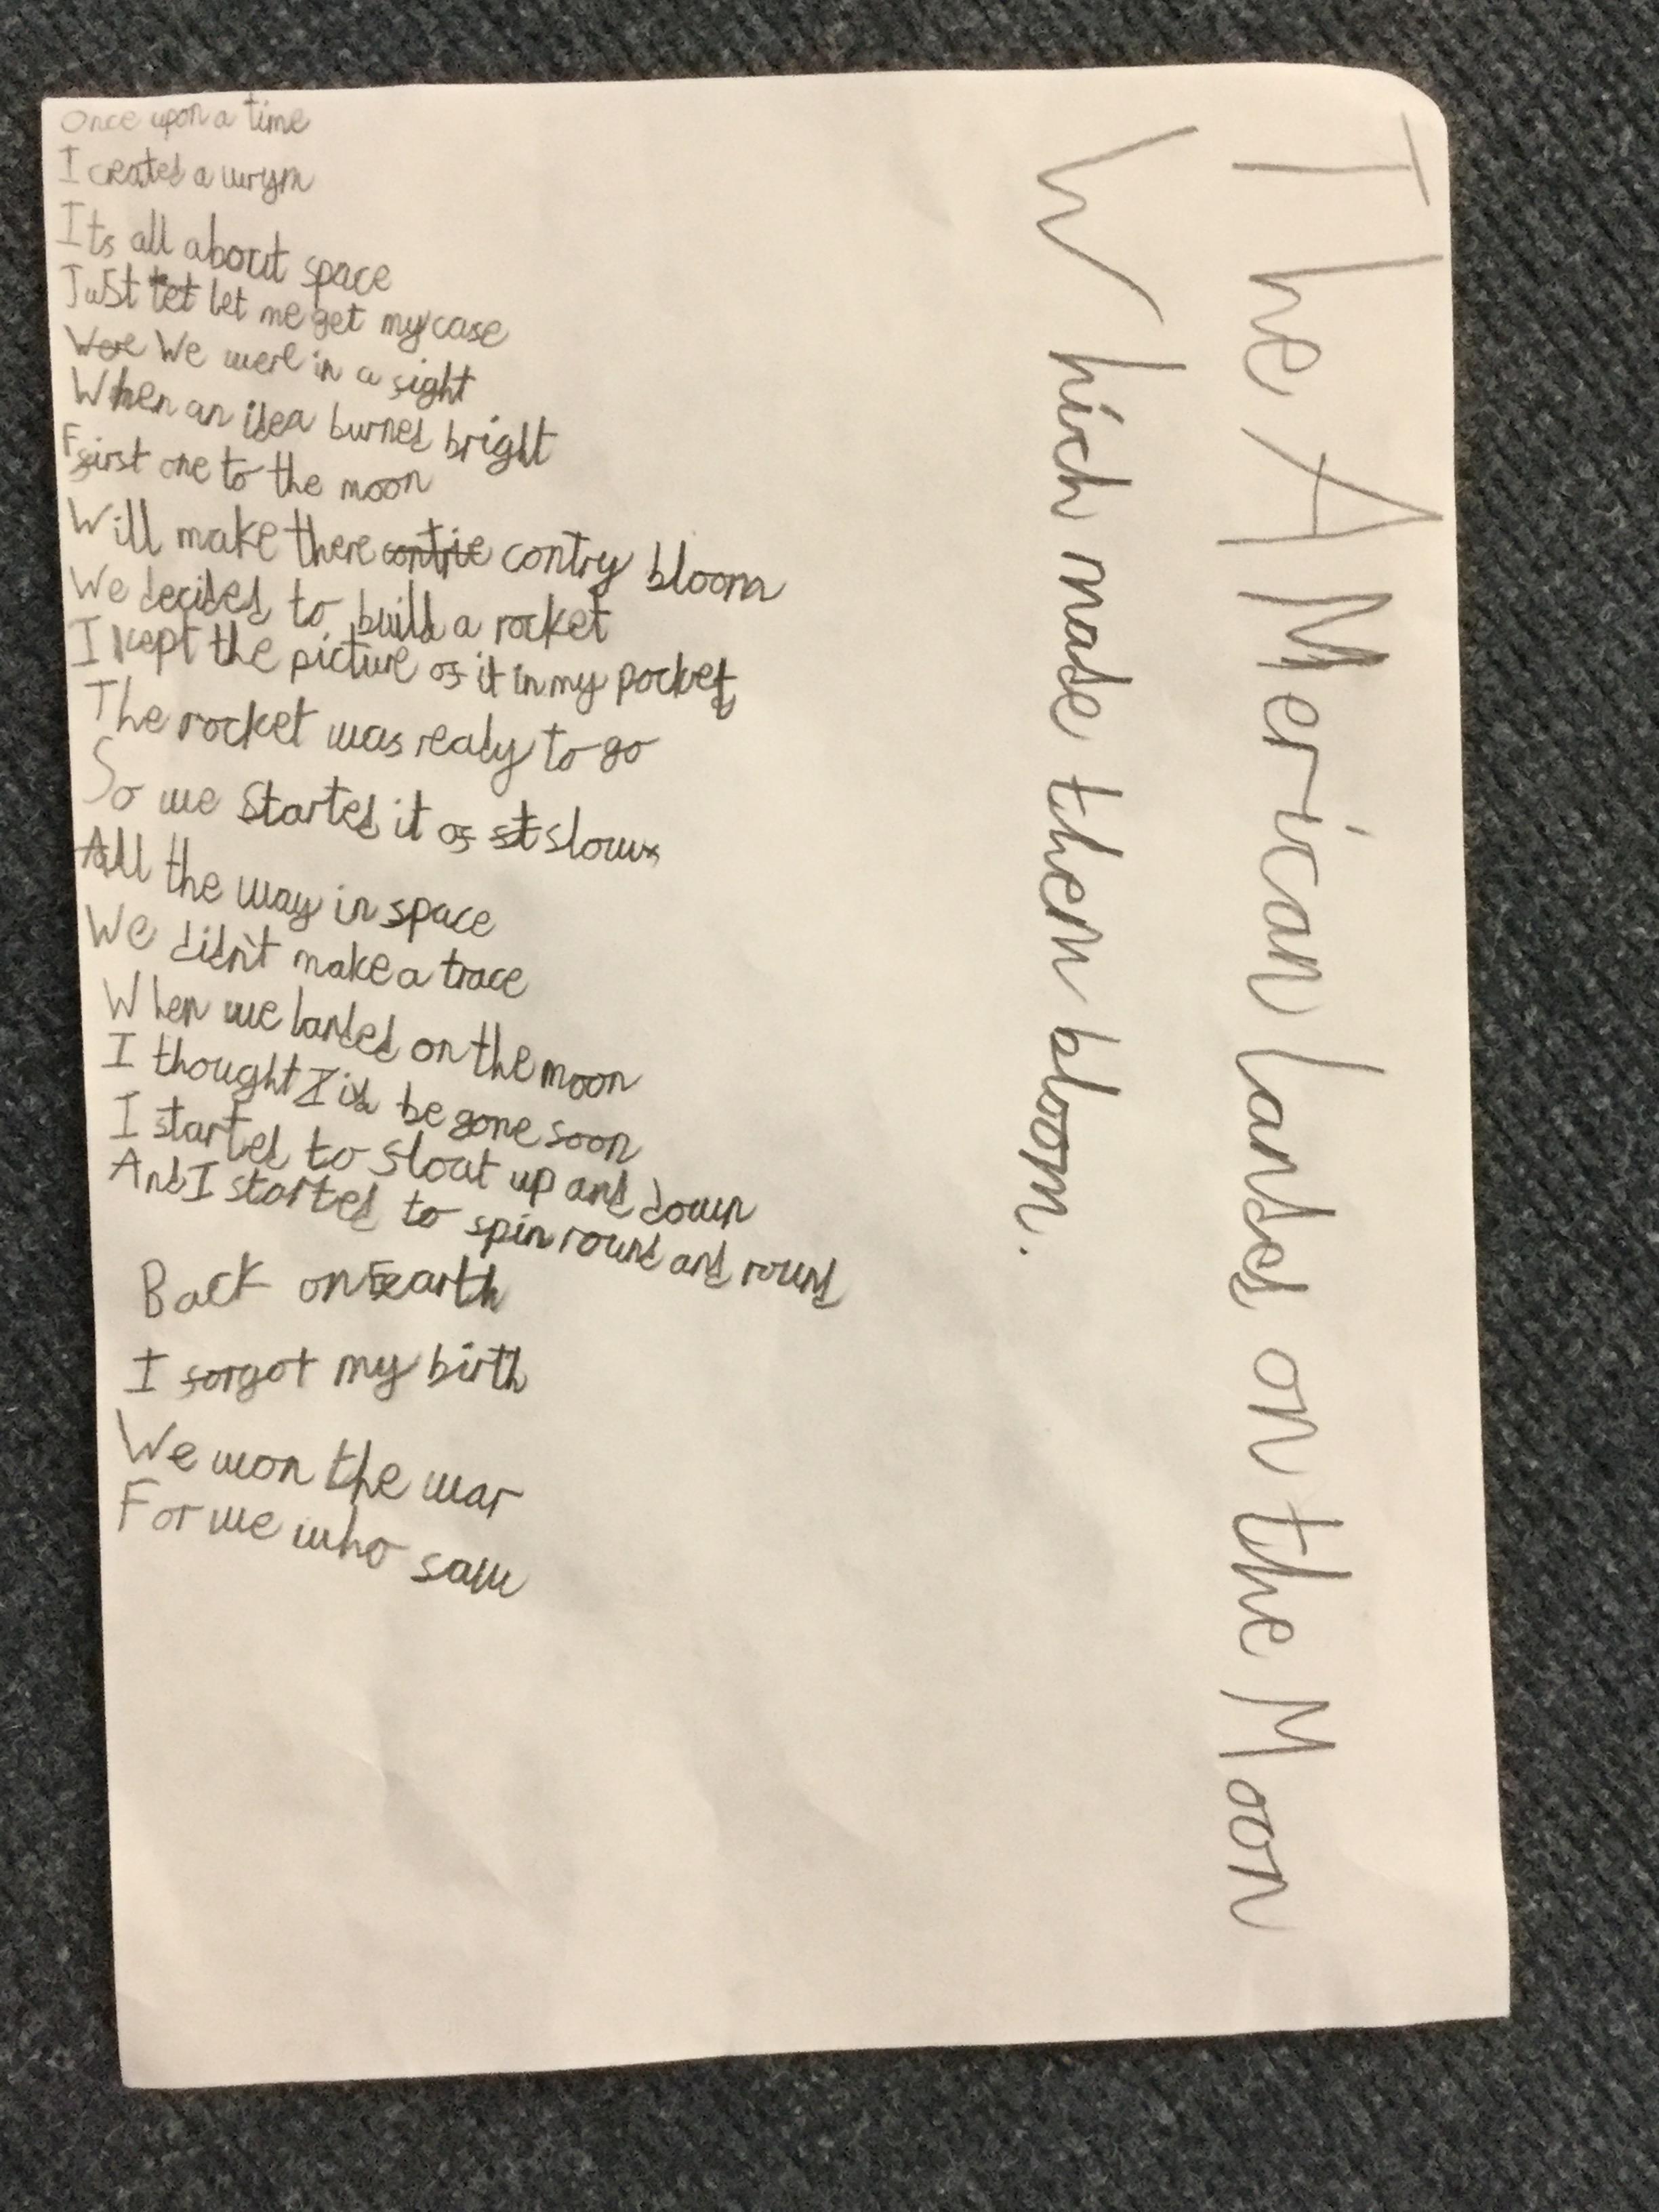 The AMerican landed on the Moon
Which made them bloom.
Once upon a time
I created a wrym
Its all about space
Just tet let me get my case
Were We were in a sight
When an idea burned bright
First one to the moon
Will make there contrie contry bloom
We decided to build a rocket
I kept the picture of it in my pocket
The rocket was realy to go
So we started it of st slow
All the way in space
We didn't make a trace
When we landed on the moon
I thought I'd be gone soon
I started to float up and down
And I started to spin round and round
Back on Earth
I forgot my birth
We won the war
For we who saw